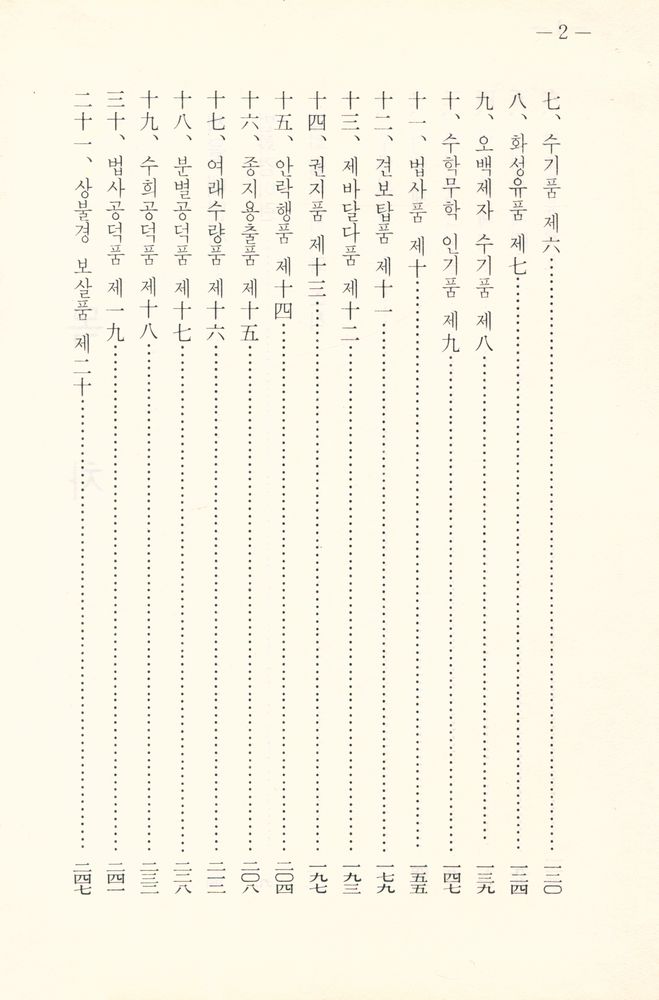 — 2 —
七、수기품 제六 …… 一二〇
八、화성유품 제七 …… 一二四
九、오백제자 수기품 제八 …… 一三九
十、수학무학 인기품 제九 …… 一四七
十一、법사품 제十 …… 一五五
十二、견보탑품 제十一 …… 一七九
十三、제바달다품 제十二 …… 一九三
十四、권지품 제十三 …… 一九七
十五、안락행품 제十四 …… 二〇四
十六、종지용출품 제十五 …… 二〇八
十七、여래수량품 제十六 …… 二一二
十八、분별공덕품 제十七 …… 二二八
十九、수희공덕품 제十八 …… 二三三
三十、법사공덕품 제一九 …… 二四一
二十一、상불경 보살품 제二十 …… 二四七